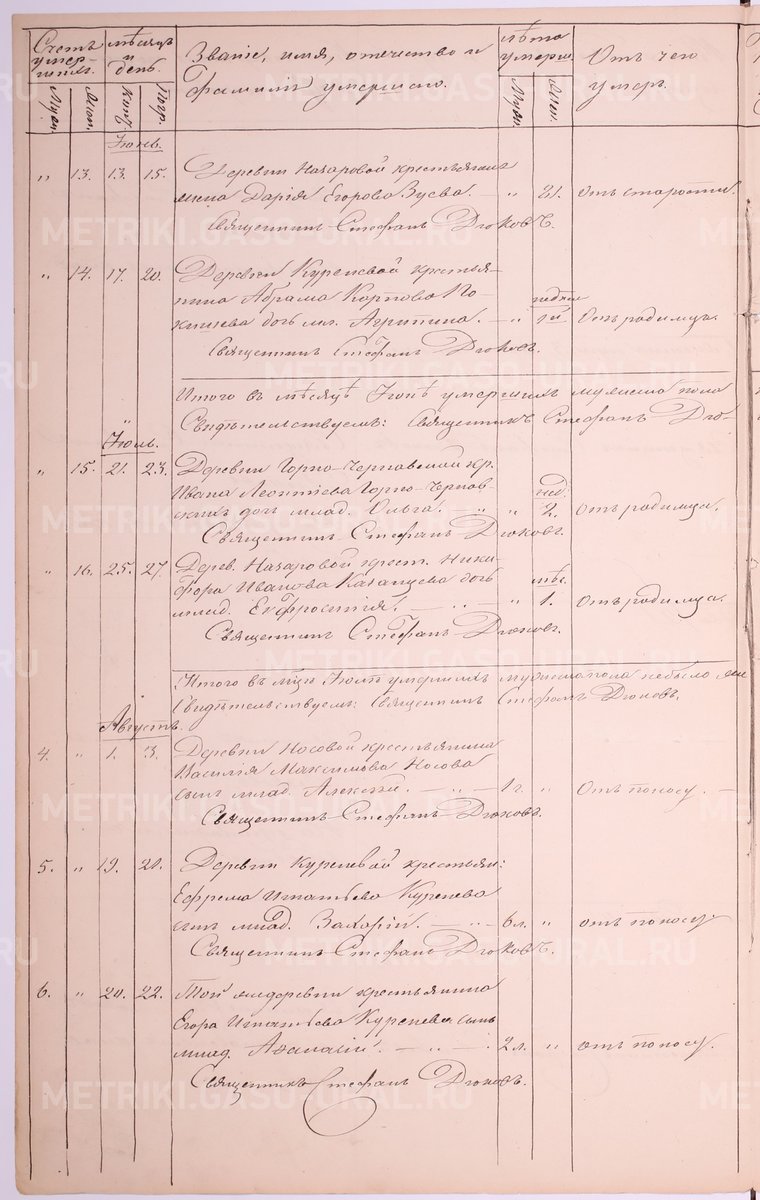 Счетъ умер-шихъ.
Муж.
Жен.
Мѣсяцъ и день.
Конч.
Погр.
Званіе, имя, отчество и
фамилія умершаго.
Лѣта умерш.
Муж.
Жен.
Отъ чего
умеръ.
Іюнь.
" 13. 13. 15. Деревни Назаровой крестьянина
жена Дарія Егорова Зуева. — " 21. Отъ старости.
Священникъ Стефанъ Дюковъ.
" 14. 17. 20. Деревни Куреневой крестья-
нина Абрама Карпова По-
недѣли
дочь мл. Агрипина. — " 1й. Отъ родимца.
Священникъ Стефанъ Дюковъ.
Итого въ мѣсяцѣ Іюнѣ умершихъ мужеска пола
Свидѣтельствуемъ: Священникъ Стефанъ Дю-
Іюль.
" 15. 21. 23. Деревни Горно-Черновской кр.
Ивана Леонтіева Горно-Чернов- нед.
скихъ дочь млад. Ольга. " " 2. отъ родимца.
Священникъ Стефанъ Дюковъ.
" 16. 25. 27. Дерев. Назаровой крест. Ники-
фора Иванова Казанцева дочь мѣс.
млад. Евфросинія. — " — " 1. Отъ родимца.
Священникъ Стефанъ Дюковъ.
Итого въ м‑цѣ Іюлѣ умершихъ мужеска пола небыло
Свидѣтельствуемъ: Священникъ Стефанъ Дюковъ.
Августъ.
4. " 1. 3. Деревни Носовой крестьянина
Василія Максимова Носова
сынъ млад. Алексѣй. — " — 1 г. " Отъ поносу. —
Священникъ Стефанъ Дюковъ.
5. " 19. 21. Деревни Куреневой крестьян:
Ефрема Игнатьева Куренева
сынъ млад. Захарій. — " — 6 л. " отъ поносу
Священникъ Стефанъ Дюковъ.
6. " 20. 22. Той же деревни крестьянина
Егора Игнатьева Куренева сынъ
млад. Афанасій. — " — 2 л. " отъ поносу.
Священникъ Стефанъ Дюковъ.
METRIKI.GASO-URAL.RU